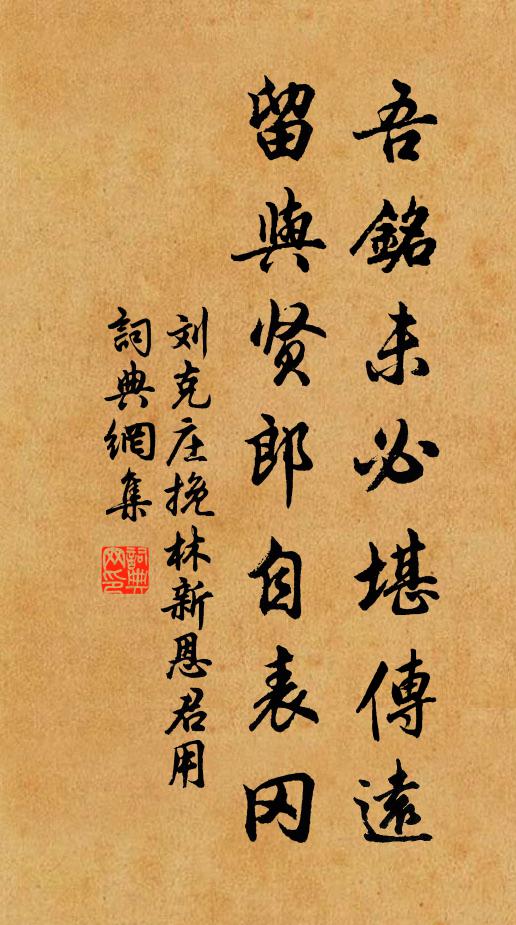 吾銘未必堪傳遠
留與贤郎自表冈
刘克庄挽林新恩君用
詞典網集
詞典網印